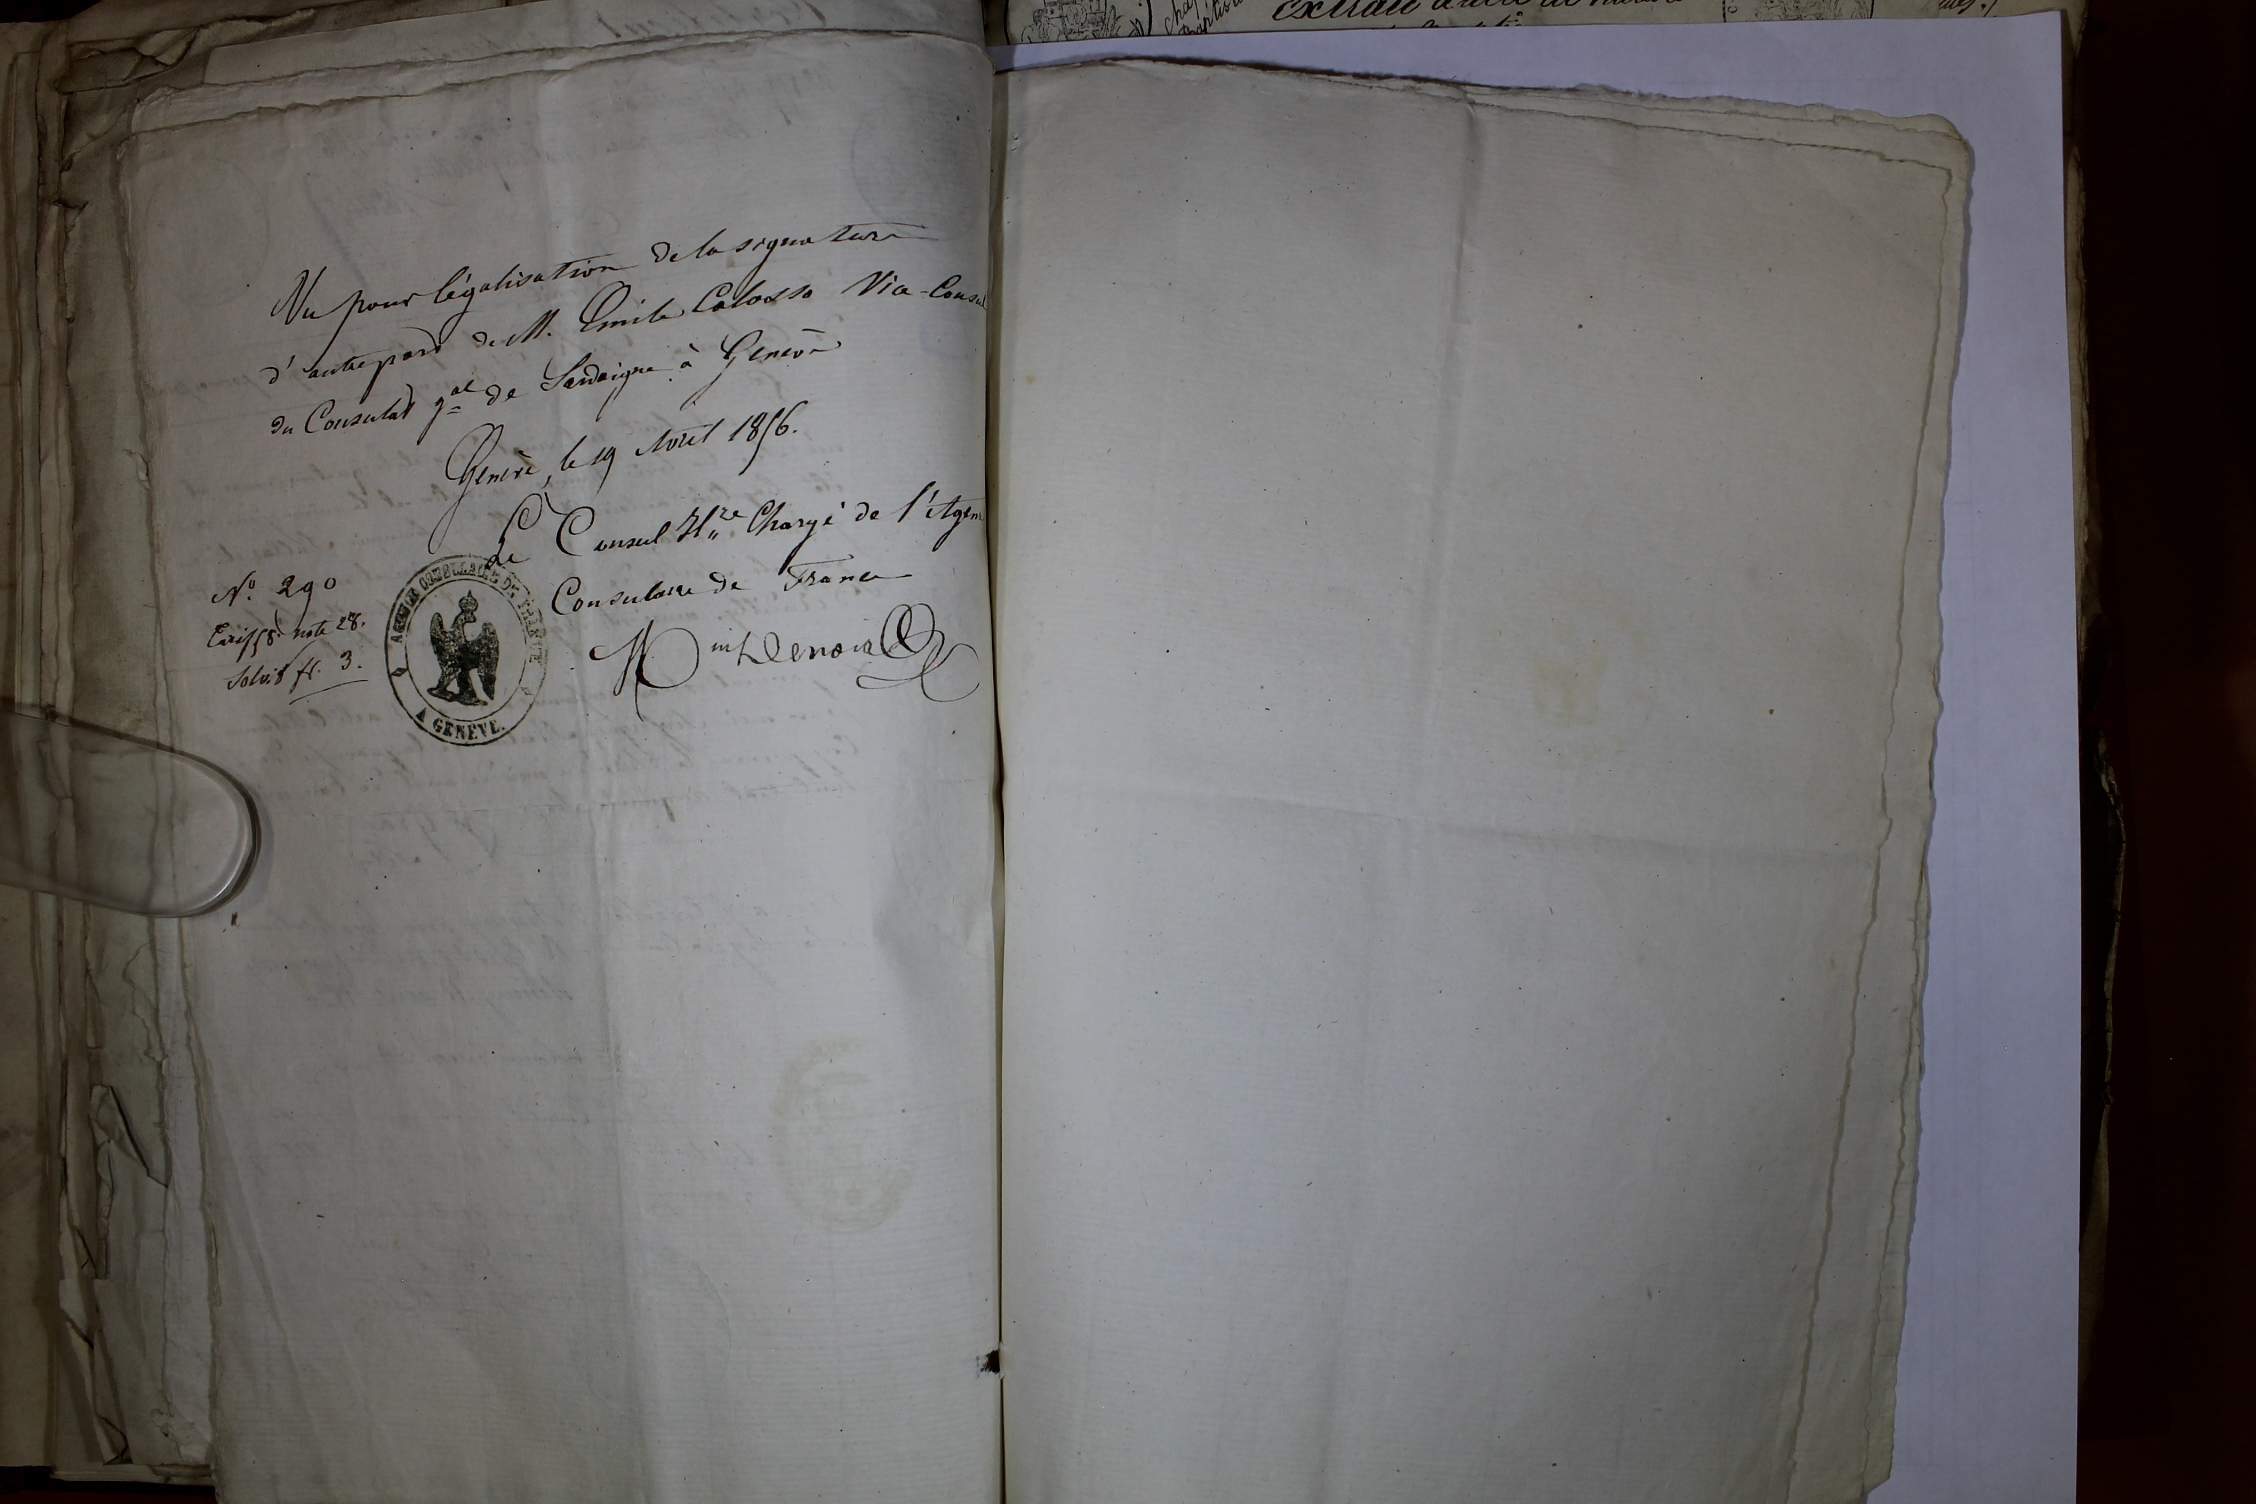 Vu pour légalisation de la signature
d'autrepart de M. Emile Colosso Vice-Consul
du Consulat gal de Sardaigne à Genève
Genève, le 19 Avril 1856.
Le Consul Hre Chargé de l'Agen
Consulaire de France
No. 290
Tarif 58. note 28.
Solvit fr. 3.
AGENCE CONSULAIRE DE FRANCE
A GENÈVE.